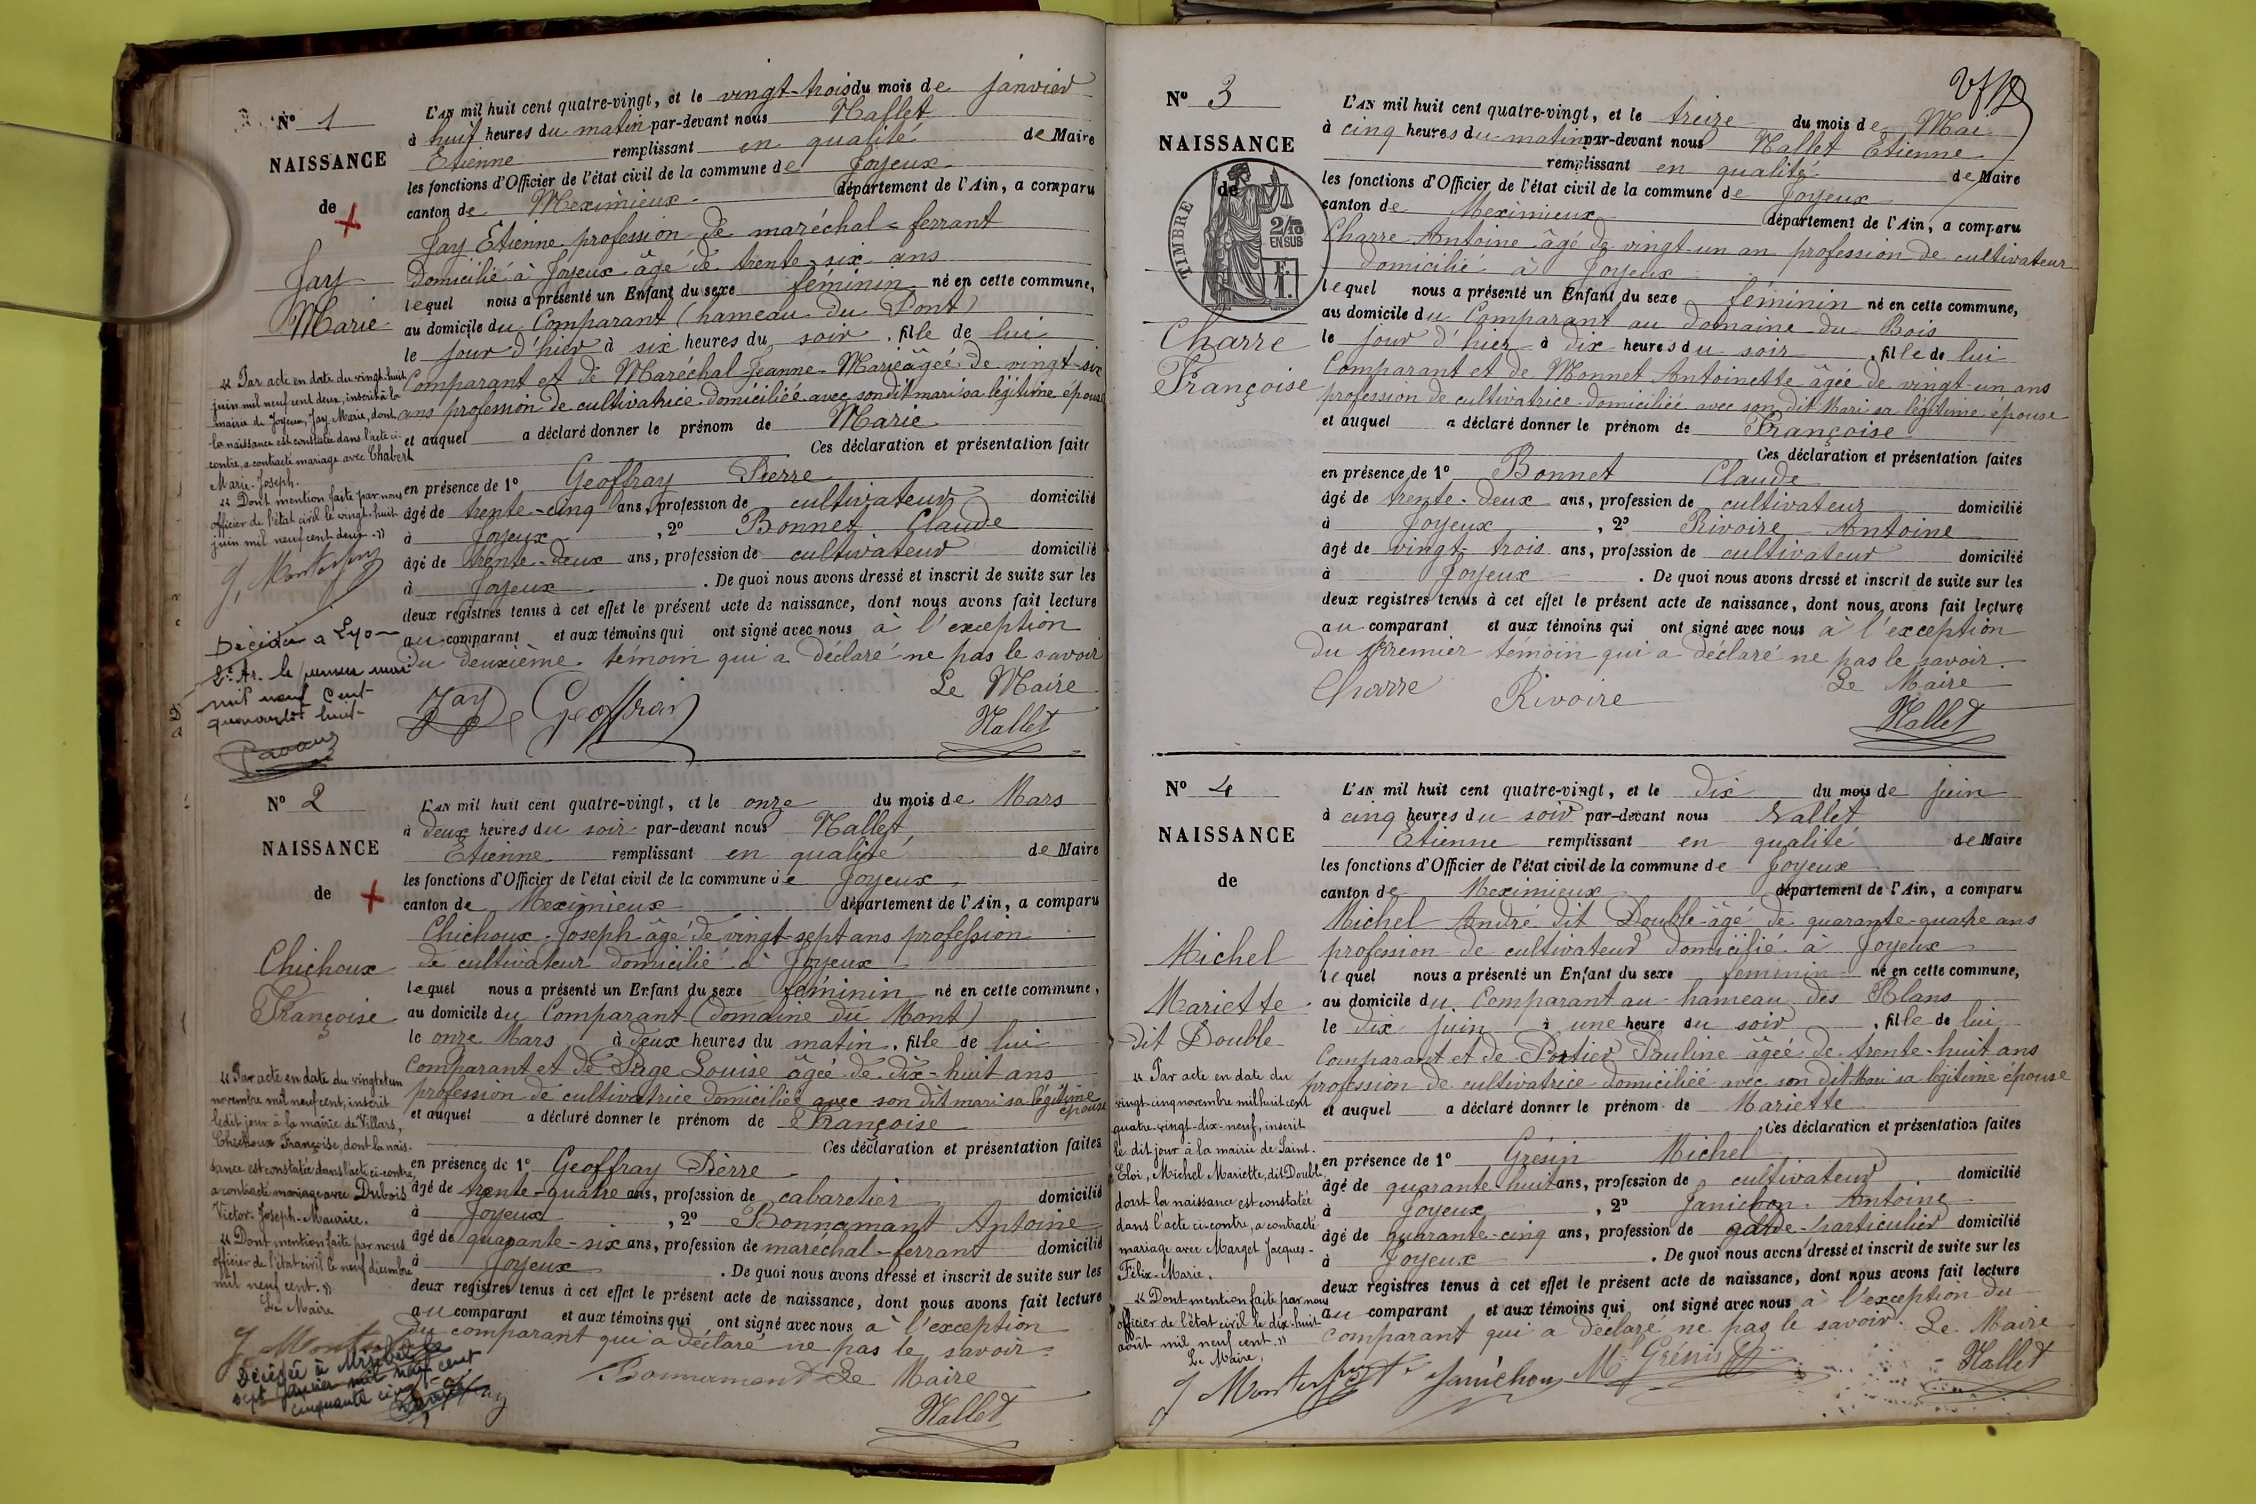 N° 1
NAISSANCE
de
Jay
Marie
« Par acte en date du vingt-huit
juin mil neuf cent deux, inscrit à la
mairie de Joyeux, Jay Marie, dont
la naissance est constatée dans l'acte ci-
contre, a contracté mariage avec Chabert
Marie-Joseph.
« Dont mention faite par nous
officier de l'état civil le vingt-huit
juin mil neuf cent deux. »
Décédée à Lyon
2e Ar. le premier mai
mil neuf cent
quarante huit
L'AN mil huit cent quatre-vingt, et le vingt-trois du mois de janvier
à huit heures du matin par-devant nous Nallet
Etienne remplissant en qualité de Maire
les fonctions d'Officier de l'état civil de la commune de Joyeux
canton de Meximieux département de l'Ain, a comparu
Jay Etienne profession de maréchal-ferrant
domicilié à Joyeux âgé de trente-six ans
lequel nous a présenté un Enfant du sexe féminin né en cette commune,
au domicile du Comparant (hameau du Pont)
le jour d'hier à six heures du soir, fille de lui
Comparant et de Maréchal Jeanne-Marie âgée de vingt-six
ans profession de cultivatrice domiciliée avec son dit mari sa légitime épouse
et auquel a déclaré donner le prénom de Marie
Ces déclaration et présentation faites
en présence de 1° Geoffray Pierre
âgé de trente-cinq ans, profession de cultivateur domicilié
à Joyeux, 2° Bonnet Claude
âgé de trente-deux ans, profession de cultivateur domicilié
à Joyeux. De quoi nous avons dressé et inscrit de suite sur les
deux registres tenus à cet effet le présent acte de naissance, dont nous avons fait lecture
au comparant et aux témoins qui ont signé avec nous à l'exception
du deuxième témoin qui a déclaré ne pas le savoir
Le Maire
Jay Geoffray Nallet
N° 2
NAISSANCE
de
Chichoux
Françoise
« Par acte en date du vingt et un
novembre mil neuf cent, inscrit
le dit jour à la mairie de Villars,
Chichoux Françoise, dont la nais-
sance est constatée dans l'acte ci-contre,
a contracté mariage avec Dubois
Victor-Joseph-Maurice.
« Dont mention faite par nous
officier de l'état civil le neuf décembre
mil neuf cent. »
Le Maire
Décédée à Miribel le
sept janvier mil neuf cent
cinquante cinq
L'AN mil huit cent quatre-vingt, et le onze du mois de Mars
à deux heures du soir par-devant nous Nallet
Etienne remplissant en qualité de Maire
les fonctions d'Officier de l'état civil de la commune de Joyeux
canton de Meximieux département de l'Ain, a comparu
Chichoux Joseph âgé de vingt-sept ans profession
de cultivateur domicilié à Joyeux
lequel nous a présenté un Enfant du sexe féminin né en cette commune,
au domicile du Comparant (domaine du Mont)
le onze Mars à deux heures du matin, fille de lui
Comparant et de Perge Louise âgée de dix-huit ans
profession de cultivatrice domiciliée avec son dit mari sa légitime
épouse
et auquel a déclaré donner le prénom de Françoise
Ces déclaration et présentation faites
en présence de 1° Geoffray Pierre
âgé de trente-quatre ans, profession de cabaretier domicilié
à Joyeux, 2° Bonnamant Antoine
âgé de quarante-six ans, profession de maréchal-ferrant domicilié
à Joyeux. De quoi nous avons dressé et inscrit de suite sur les
deux registres tenus à cet effet le présent acte de naissance, dont nous avons fait lecture
au comparant et aux témoins qui ont signé avec nous à l'exception
du comparant qui a déclaré ne pas le savoir
Bonnamant Le Maire
Nallet
N° 3
NAISSANCE
de
TIMBRE
2/10
EN SUS
Charre
Françoise
L'AN mil huit cent quatre-vingt, et le treize du mois de Mai
à cinq heures du matin par-devant nous Nallet Etienne
remplissant en qualité de Maire
les fonctions d'Officier de l'état civil de la commune de Joyeux
canton de Meximieux département de l'Ain, a comparu
Charre Antoine âgé de vingt-un an profession de cultivateur
domicilié à Joyeux
lequel nous a présenté un Enfant du sexe féminin né en cette commune,
au domicile du Comparant au domaine du Bois
le jour d'hier à dix heures du soir, fille de lui
Comparant et de Monnet Antoinette âgée de vingt-un ans
profession de cultivatrice domiciliée avec son dit Mari sa légitime épouse
et auquel a déclaré donner le prénom de Françoise
Ces déclaration et présentation faites
en présence de 1° Bonnet Claude
âgé de trente-deux ans, profession de cultivateur domicilié
à Joyeux, 2° Rivoire Antoine
âgé de vingt-trois ans, profession de cultivateur domicilié
à Joyeux. De quoi nous avons dressé et inscrit de suite sur les
deux registres tenus à cet effet le présent acte de naissance, dont nous avons fait lecture
au comparant et aux témoins qui ont signé avec nous à l'exception
du Premier témoin qui a déclaré ne pas le savoir.
Charre Rivoire Le Maire
Nallet
N° 4
NAISSANCE
de
Michel
Mariette
dit Double
« Par acte en date du
vingt-cinq novembre mil huit cent
quatre-vingt-dix-neuf, inscrit
le dit jour à la mairie de Saint-
Eloi, Michel Mariette, dit Double,
dont la naissance est constatée
dans l'acte ci-contre, a contracté
mariage avec Marget Jacques-
Félix-Marie.
« Dont mention faite par nous
officier de l'état civil le dix-huit
août mil neuf cent. »
Le Maire,
L'AN mil huit cent quatre-vingt, et le dix du mois de juin
à cinq heures du soir par-devant nous Nallet
Etienne remplissant en qualité de Maire
les fonctions d'Officier de l'état civil de la commune de Joyeux
canton de Meximieux département de l'Ain, a comparu
Michel André dit Double âgé de quarante-quatre ans
profession de cultivateur domicilié à Joyeux
lequel nous a présenté un Enfant du sexe féminin né en cette commune,
au domicile du Comparant au hameau des Blans
le dix juin à une heure du soir, fille de lui
Comparant et de Portier Pauline âgée de trente-huit ans
profession de cultivatrice domiciliée avec son dit Mari sa légitime épouse
et auquel a déclaré donner le prénom de Mariette
Ces déclaration et présentation faites
en présence de 1° Grésin Michel
âgé de quarante huit ans, profession de cultivateur domicilié
à Joyeux, 2° Janichon Antoine
âgé de quarante-cinq ans, profession de garde-particulier domicilié
à Joyeux. De quoi nous avons dressé et inscrit de suite sur les
deux registres tenus à cet effet le présent acte de naissance, dont nous avons fait lecture
au comparant et aux témoins qui ont signé avec nous à l'exception du
comparant qui a déclaré ne pas le savoir. Le Maire
Janichon Nallet